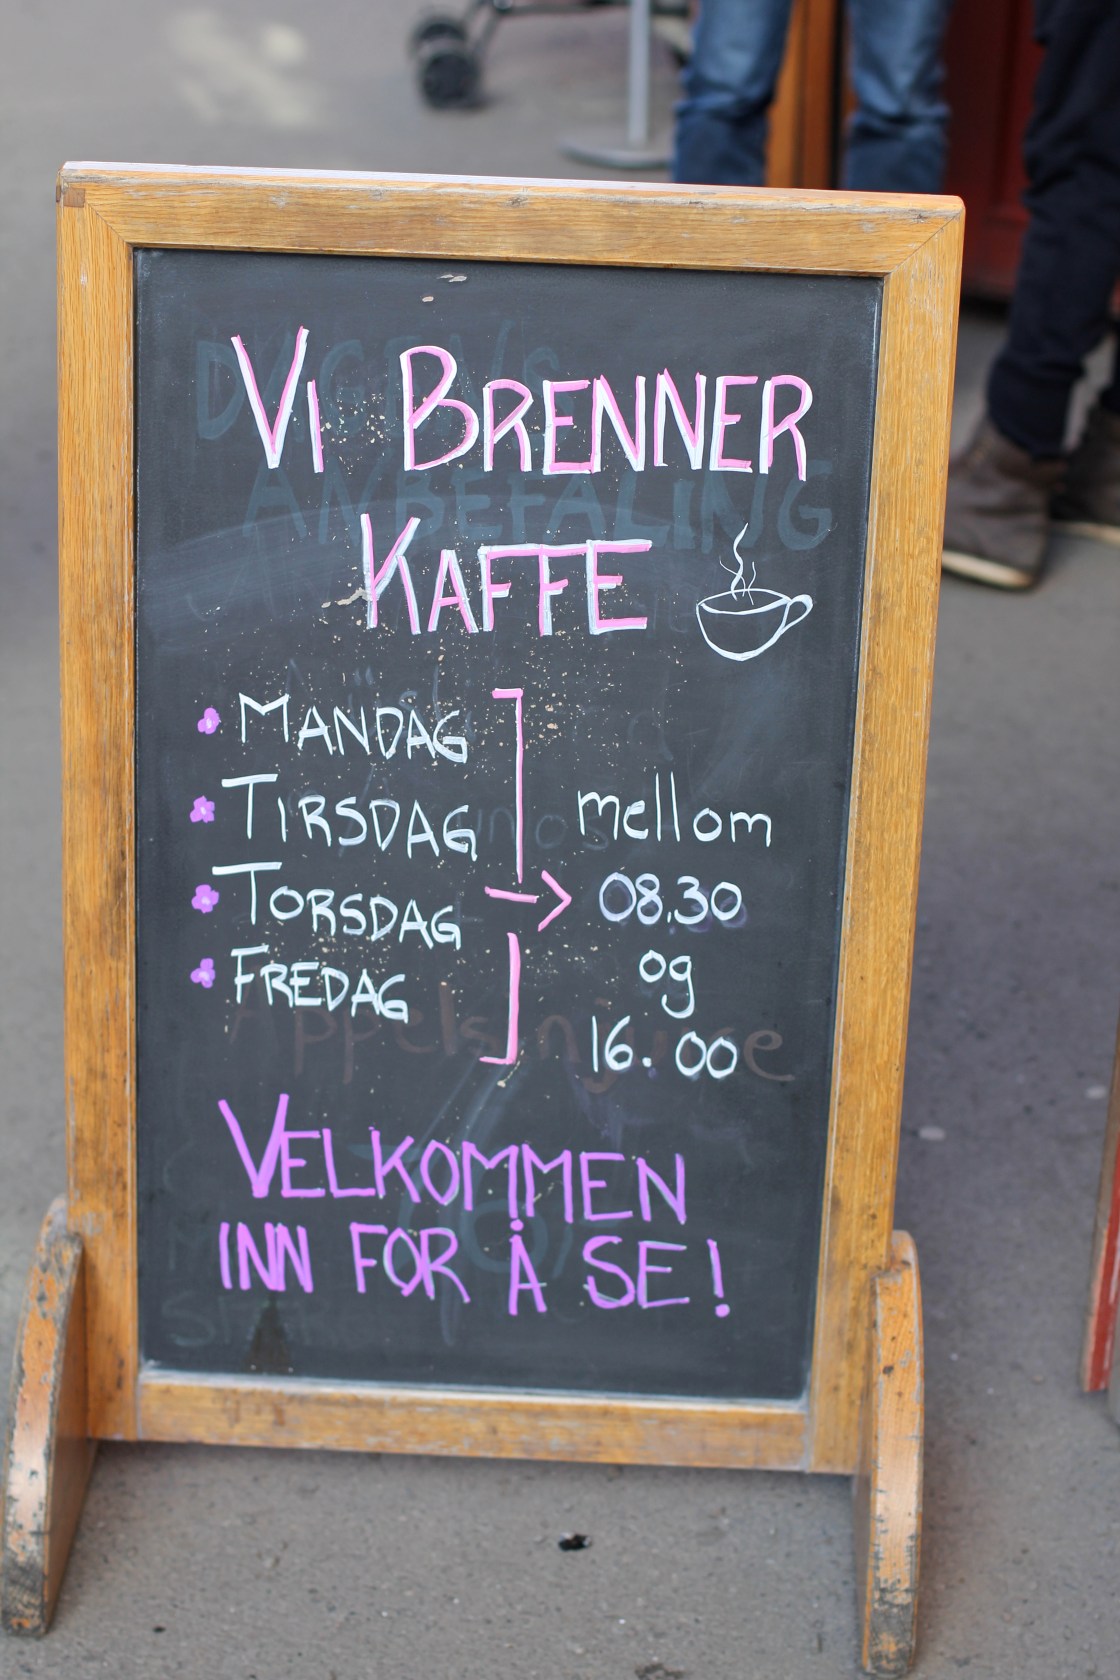 VI BRENNER
KAFFE
MANDAG
TIRSDAG
TORSDAG
FREDAG
mellom
08.30
og
16.00
VELKOMMEN
INN FOR Å SE!
DAGENS
ANBEFALING
Appelsinjuice